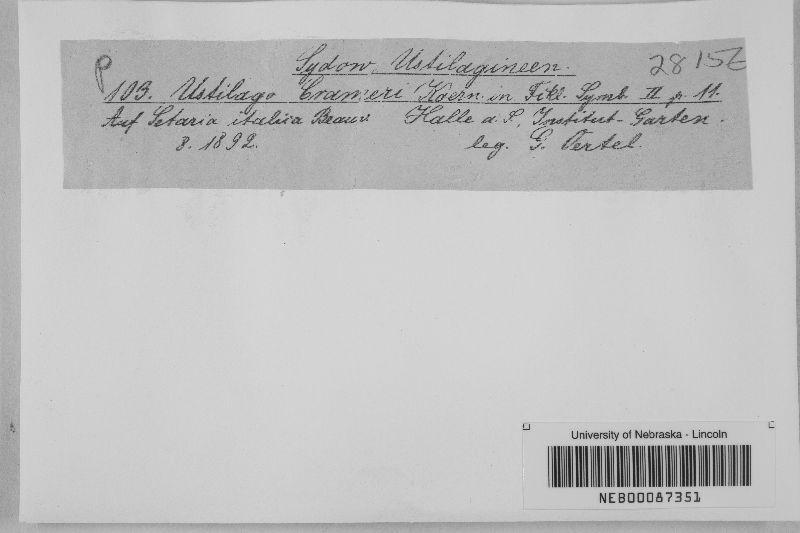 Sydow, Ustilagineen.
P
103. Ustilago Crameri Koern. in Fckl. Symb. II p. 11.
Auf Setaria italica Beauv. Halle a. S., Institut-Garten.
8. 1892. leg. G. Oertel.
University of Nebraska - Lincoln
NEB00087351